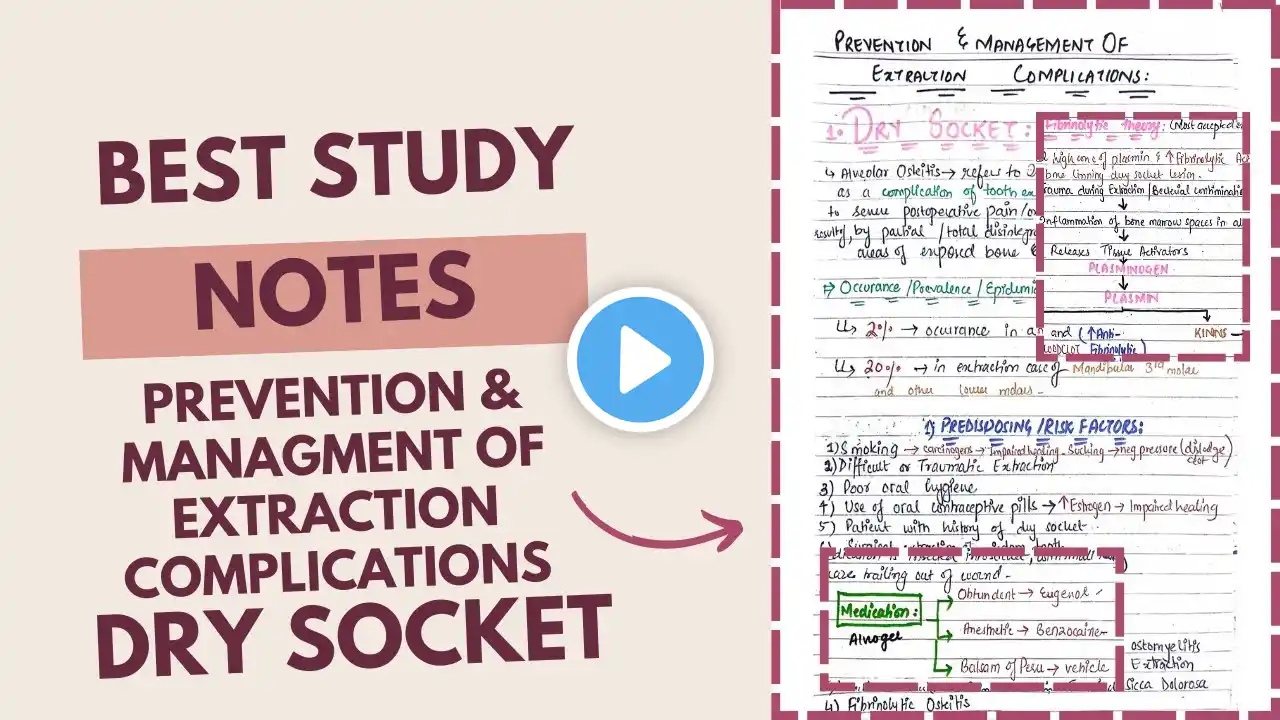 BEST STUDY
NOTES
PREVENTION &
MANAGMENT OF
EXTRACTION
COMPLICATIONS
DRY SOCKET
PREVENTION & MANAGEMENT OF
EXTRACTION COMPLICATIONS:
1. DRY SOCKET:
↳ Alveolar Osteitis → refers to
as a complication of tooth
to severe postoperative pain
by partial / total
areas of exposed bone
Occurance / Prevalence /
↳ 2% → occurance in
↳ 20% → in extraction case of Mandibular 3rd molar
and other lower molars -
1) PREDISPOSING / RISK FACTORS:
1) Smoking → carcinogens → Impaired healing - Sucking → neg pressure (dislodge clot)
2) Difficult or Traumatic Extraction
3) Poor oral hygiene
4) Use of oral contraceptive pills → ↑ Estrogen → Impaired healing
5) Patient with history of dry socket
Fibrinolytic Theory: (Most accepted
high conc of plasmin & ↑ Fibrinolytic
bone lining dry socket
Trauma during Extraction / Bacterial
Inflammation of bone marrow spaces in
Releases Tissue Activators
PLASMINOGEN
PLASMIN
and (↑ Anti-
Fibrinolytic)
KININS
trailing out of wound -
Medication:
Alvogel
Obtundent → Eugenol
Anesthetic → Benzocaine
Balsam of Peru → vehicle
ostomyelitis
Extraction
Sicca Dolorosa
4) Fibrinolytic Osteitis